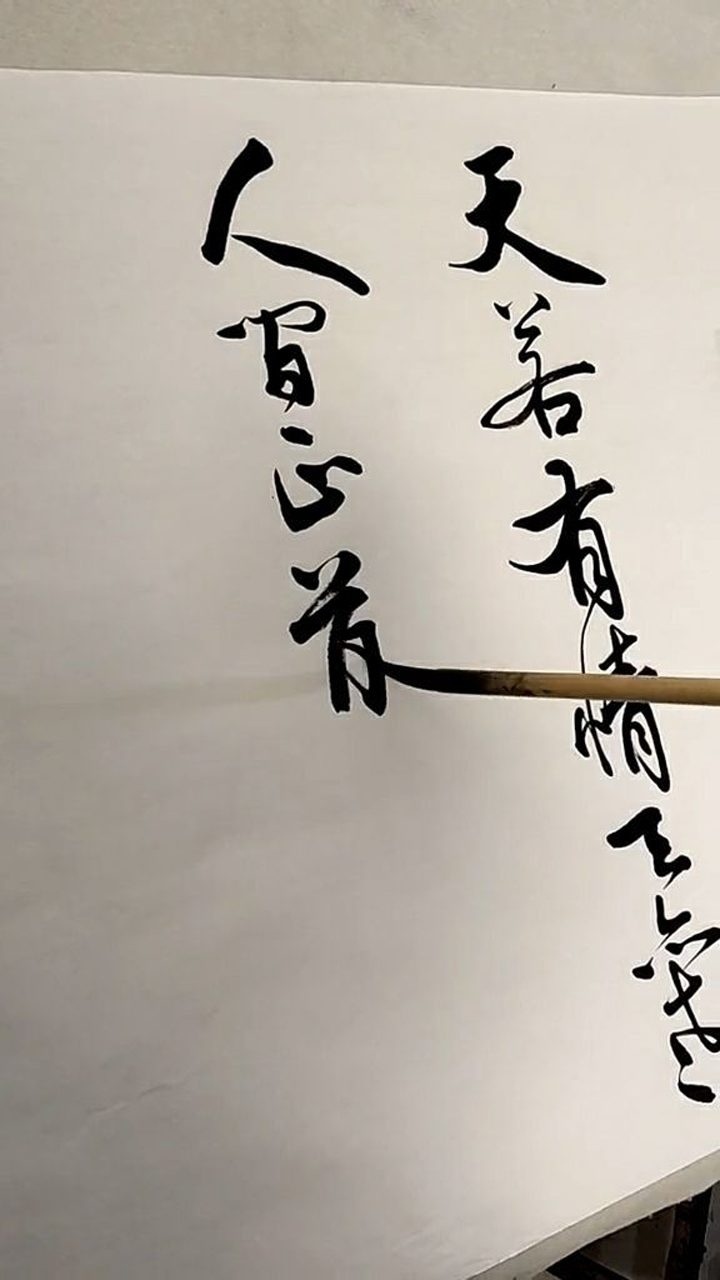 天若有情天亦老
人间正